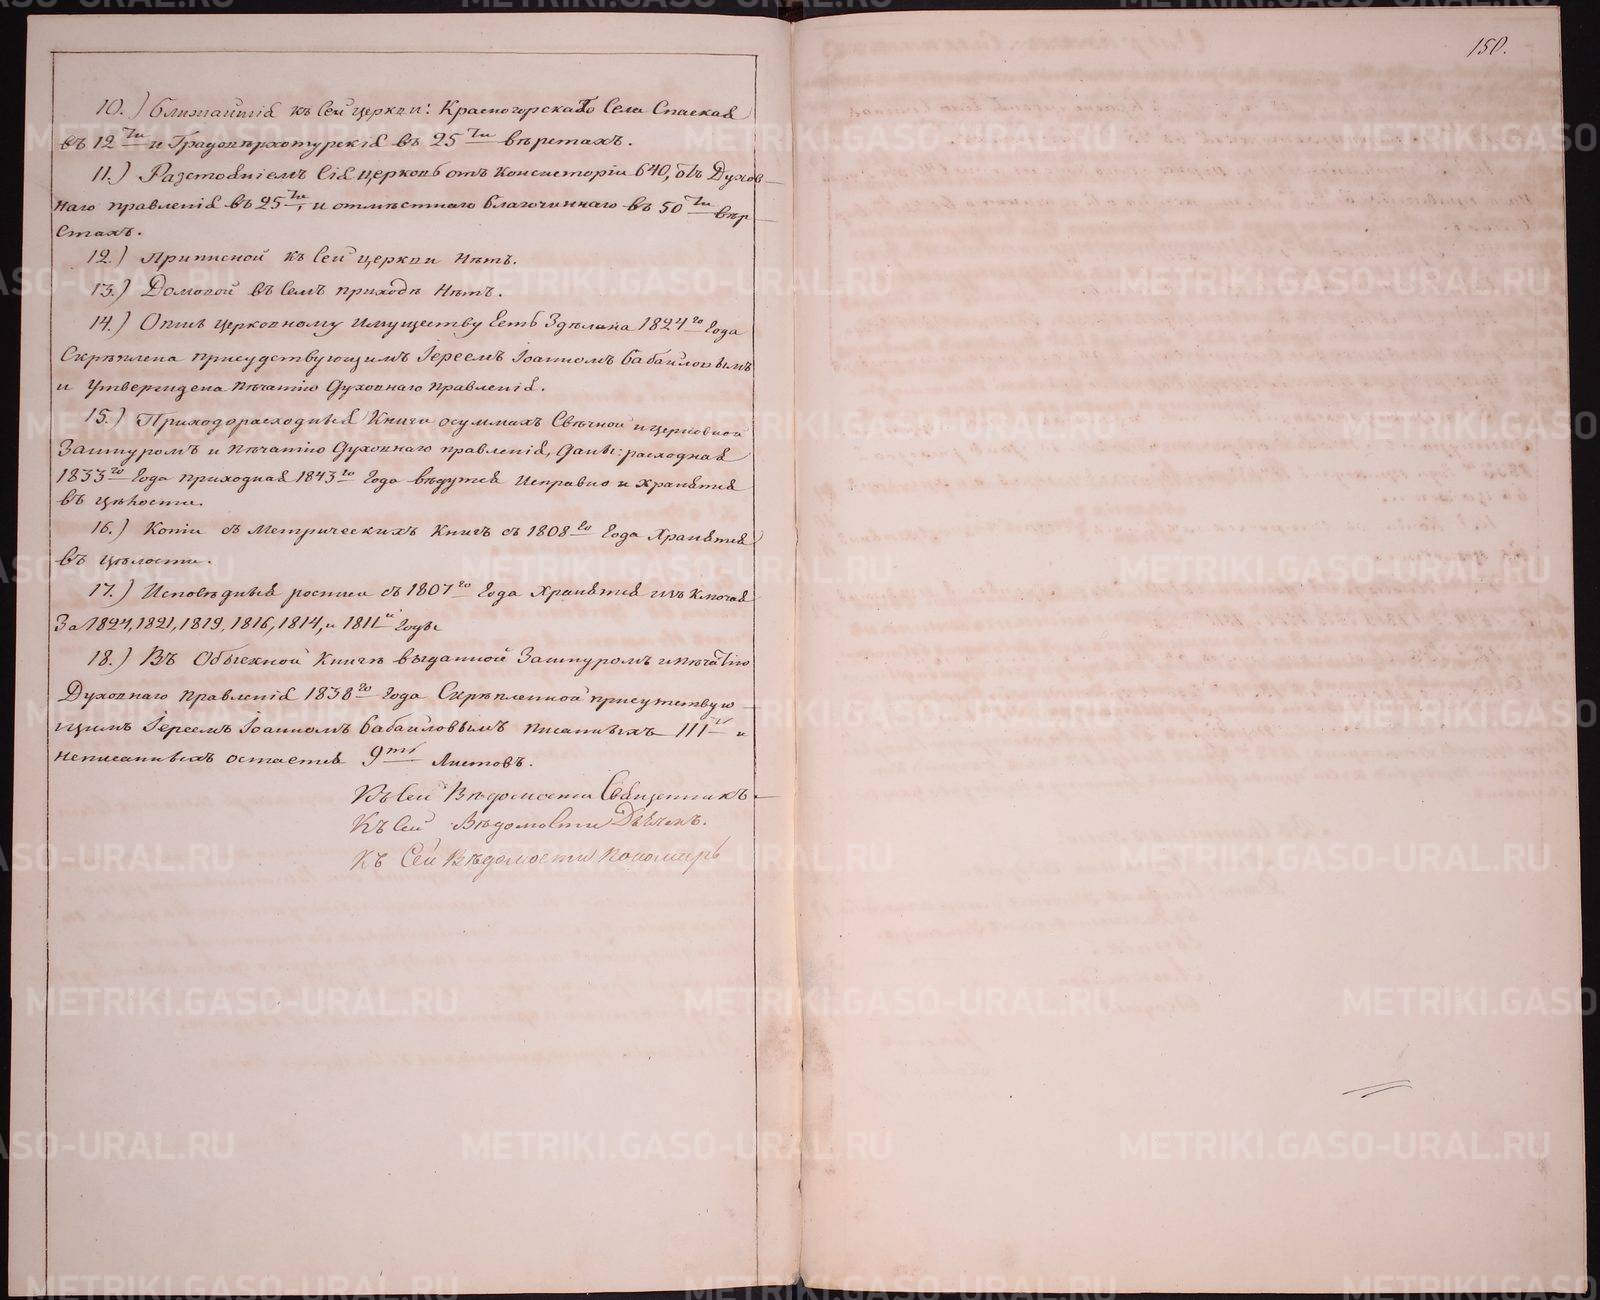 150.
10.) Ближайшія къ сей церкви: Красногорскаго Села Спаская
въ 12ти и Градоверхотурскія въ 25ти верстахъ.
11.) Разстояніемъ сія церковь отъ Консисторіи 640, отъ Духов-
наго правленія въ 25ти, и отместнаго благочиннаго въ 50ти вер-
стахъ.
12.) Приписной къ сей церкви нѣтъ.
13.) Домовой въ семъ приходѣ нѣтъ.
14.) Опись церковному имуществу есть здѣлана 1824го года
Скрѣплена присудствующимъ Іереемъ Іоанномъ Бабайловымъ
и утверждена печатію Духовнаго правленія.
15.) Приходорасходныя Книги осуммахъ Свѣчной и церковной
Зашнуромъ и печатію Духовнаго правленія, даны: расходная
1833го года приходная 1843го года ведутся исправно и хранятся
въ цѣлости.
16.) Копіи съ Метрическихъ Книгъ съ 1808го года хранятся
въ цѣлости.
17.) Исповѣдныя росписи съ 1807го года хранятся
За 1824, 1821, 1819, 1816, 1814, и 1811й годы
18.) Въ Обыскной книгѣ выданной Зашнуромъ ипечатію
Духовнаго правленія 1838го года Скрѣпленной присутствую-
щимъ Іереемъ Іоанномъ Бабайловымъ писанныхъ и
неписанныхъ остается 9ть листовъ.
Къ сей Вѣдомости Священникъ
Къ сей Вѣдомости Дьячекъ.
Къ Сей Вѣдомости Пономарь
METRIKI.GASO-URAL.RU